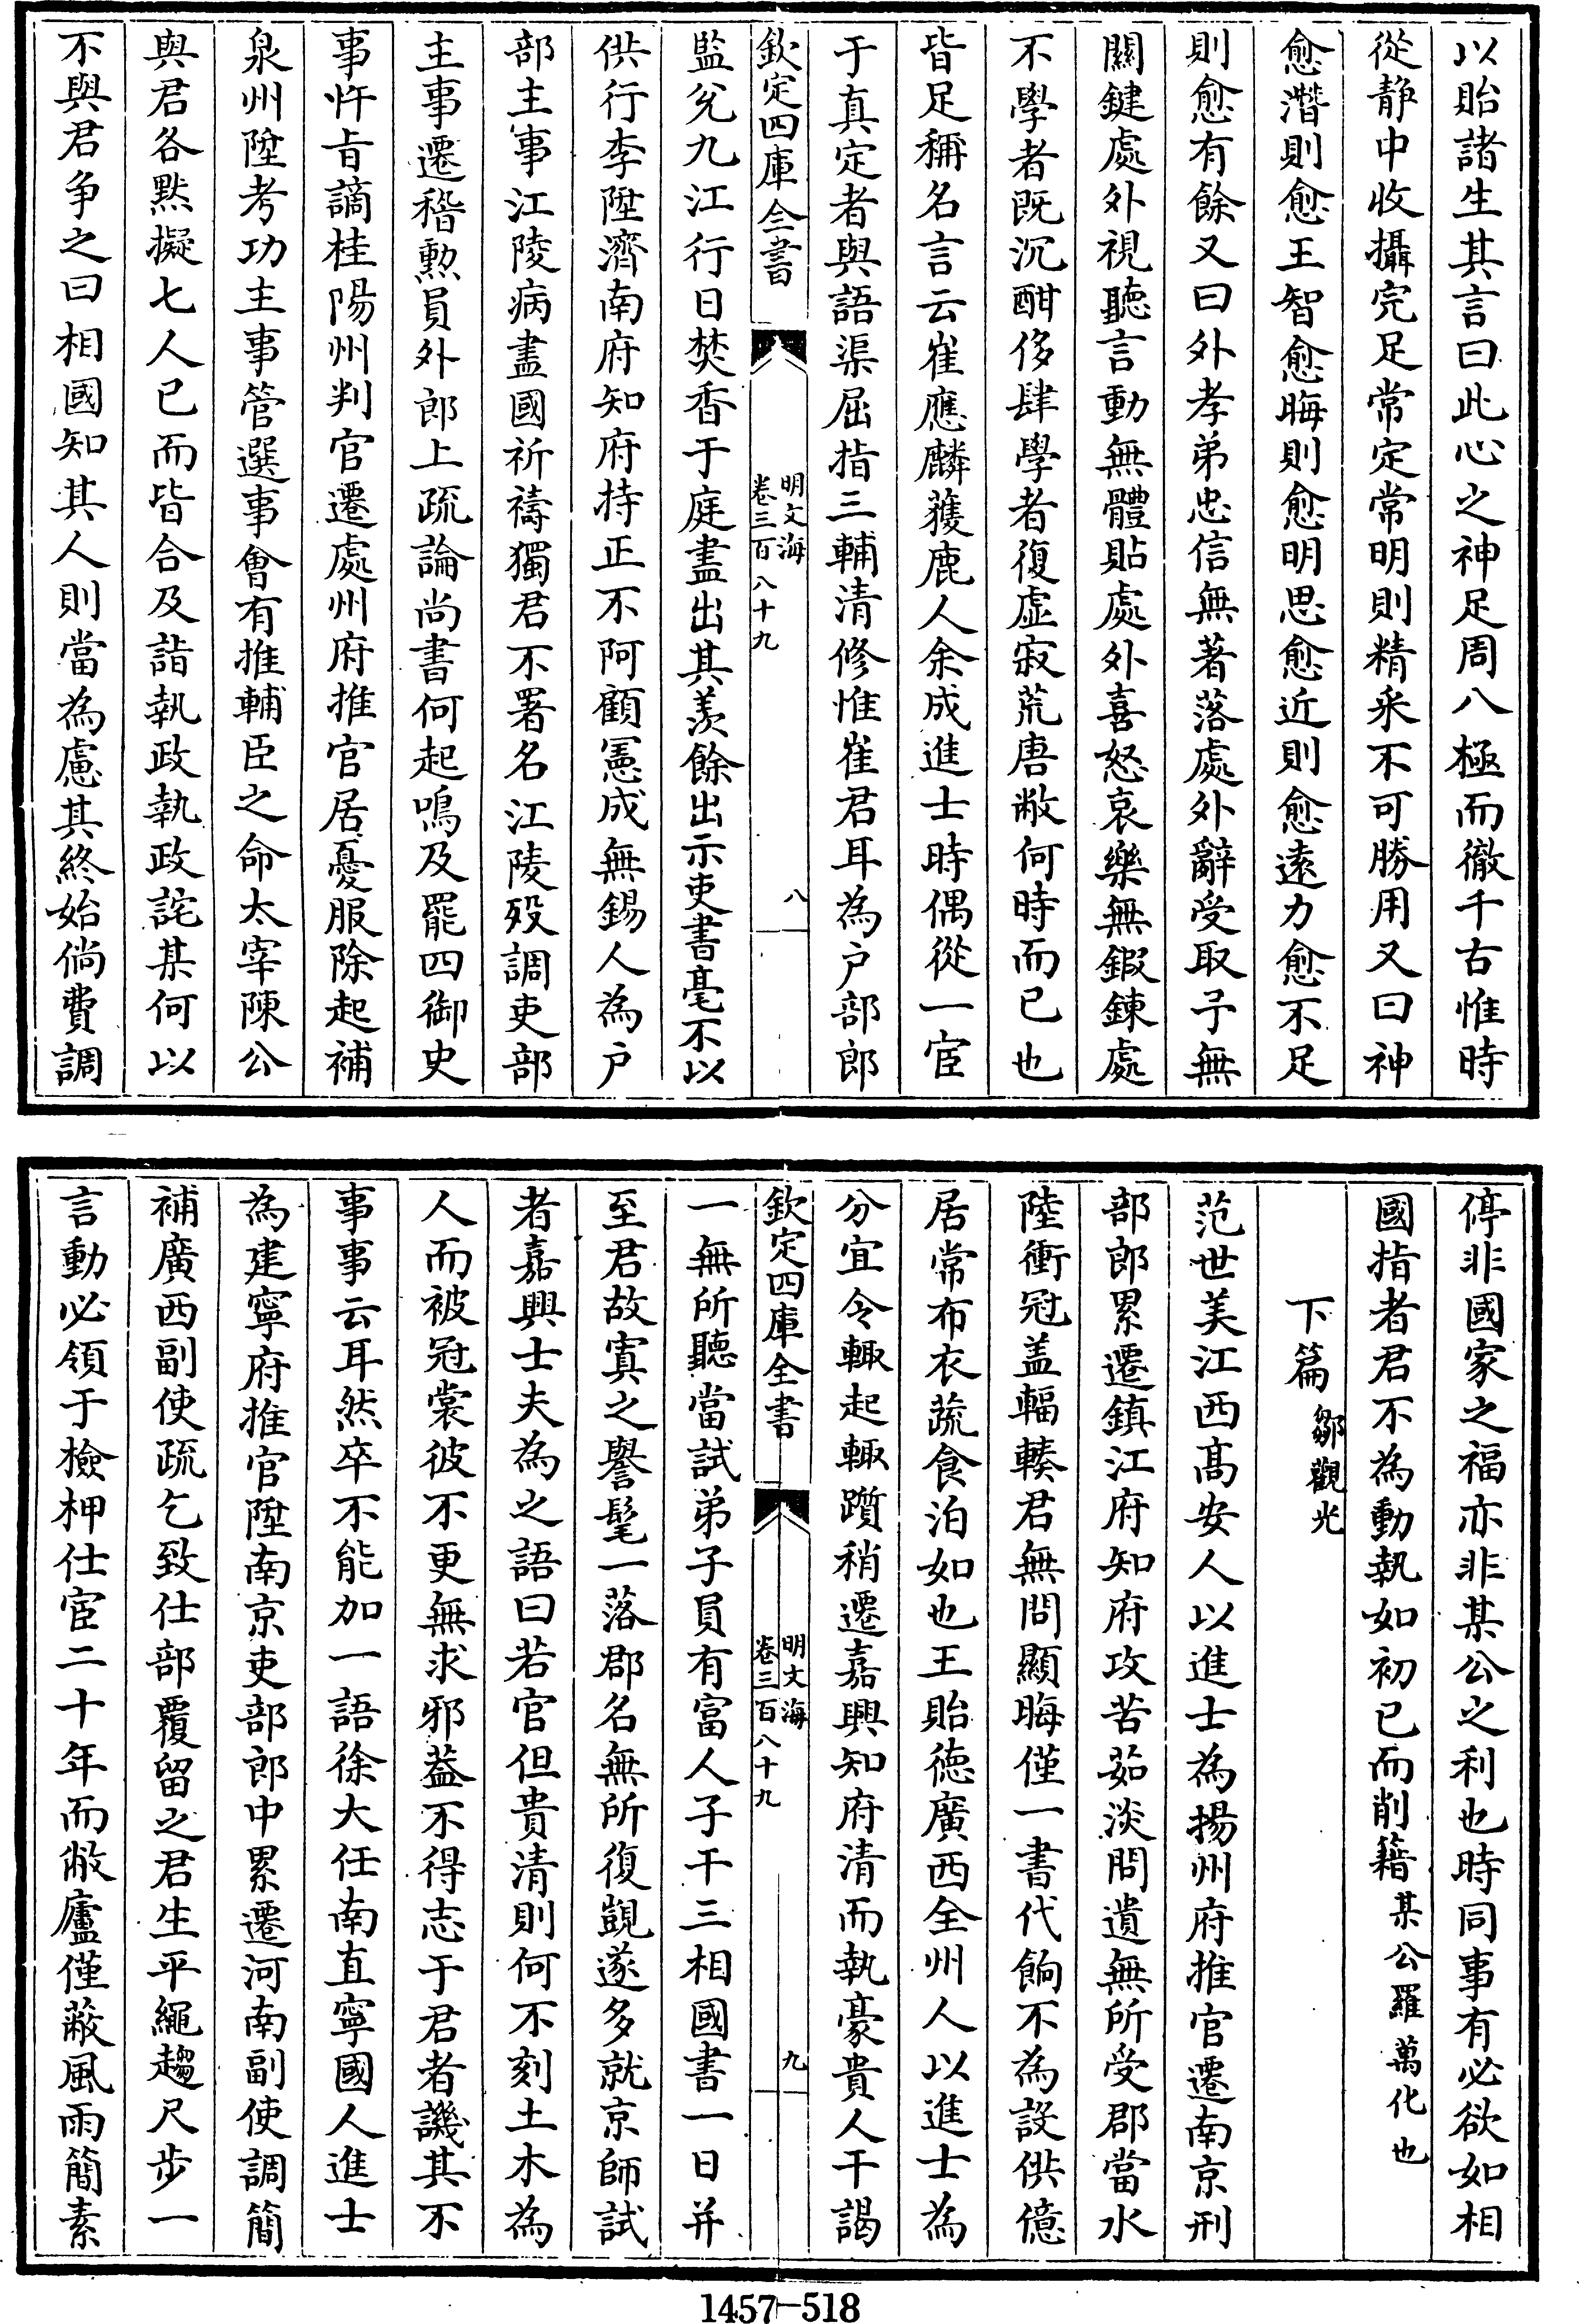 以貽諸生其言曰此心之神足周八極而徹千古惟時
從靜中收攝完足常定常明則精采不可勝用又曰神
愈潛則愈王智愈晦則愈明思愈近則愈遠力愈不足
則愈有餘又曰外孝弟忠信無著落處外辭受取予無
關鍵處外視聽言動無體貼處外喜怒哀樂無鍜鍊處
不學者既沉酣侈肆學者復虛寂荒唐敝何時而已也
皆足稱名言云崔應麟蒦鹿人余成進士時偶從一宦
于真定者與語渠屈指三輔清修惟崔君耳為户部郎
欽定四庫全書
明文海
卷三百八十九
八
監兊九江行日焚香于庭盡出其羡餘出示吏書毫不以
供行李陞濟南府知府持正不阿顧憲成無錫人為户
部主事江陵病盡國祈禱獨君不署名江陵歿調吏部
主事遷稽勲員外郎上疏論尚書何起鳴及罷四御史
事忤㫖謫桂陽州判官遷處州府推官居憂服除起補
泉州陞考功主事管選事會有推輔臣之命太宰陳公
與君各黙擬七人已而皆合及詣執政執政詫某何以
不與君争之曰相國知其人則當為慮其終始倘費調
停非國家之福亦非某公之利也時同事有必欲如相
國指者君不為動執如初已而削籍某公羅萬化也
下篇鄒觀光
范世美江西髙安人以進士為揚州府推官遷南京刑
部郎累遷鎮江府知府攻苦茹淡問遺無所受郡當水
陸衝冠盖輻輳君無問顯晦僅一書代餉不為設供億
居常布衣蔬食泊如也王貽徳廣西全州人以進士為
分宜令輙起輙躓稍遷嘉興知府清而執豪貴人干謁
欽定四庫全書
明文海
卷三百八十九
九
一無所聽當試弟子員有富人子干三相國書一日并
至君故寘之譽髦一落郡名無所復覬遂多就京師試
者嘉興士夫為之語曰若官但貴清則何不刻土木為
人而被冠裳彼不更無求邪葢不得志于君者譏其不
事事云耳然卒不能加一語徐大任南直寧國人進士
為建寧府推官陞南京吏部郎中累遷河南副使調簡
補廣西副使疏乞致仕部覆留之君生平繩趨尺步一
言動必領于檢柙仕宦二十年而敝廬僅蔽風雨簡素
1457-518